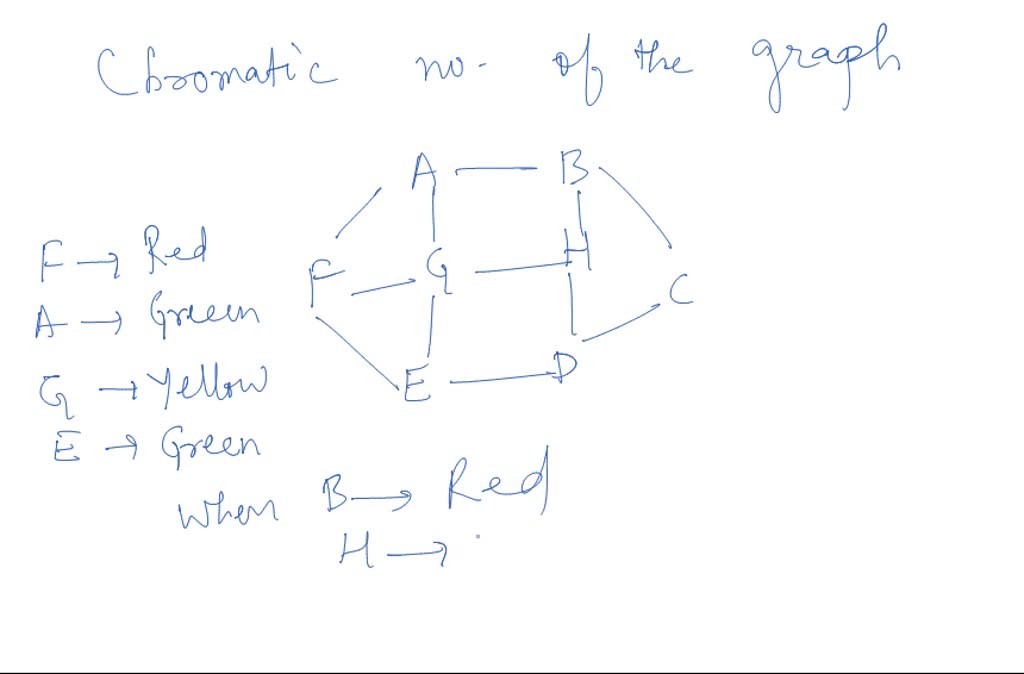 Chromatic no. of the graph
A B
F G H C
E D
F → Red
A → Green
G → Yellow
E → Green
when B → Red
H →